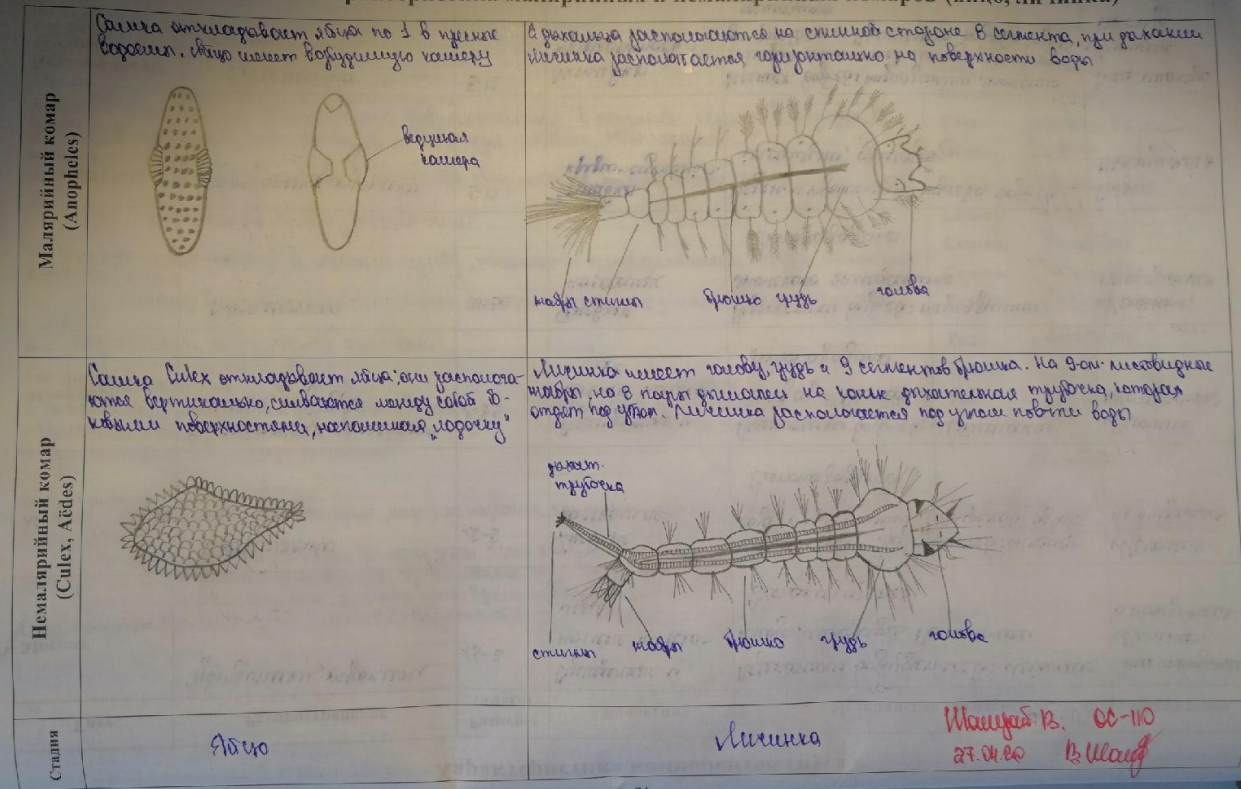 малярийных и немалярийных комаров (яйцо, личинка)
Малярийный комар
(Anopheles)
Самка откладывает яйца по 1 в пресные
водоемы. Яйцо имеет воздушную камеру
воздушная
камера
дыхальца располагаются на спинной стороне 8 сегмента, при дыхании
личинка располагается горизонтально на поверхности воды
жабры стигмы брюшко грудь голова
Немалярийный комар
(Culex, Aëdes)
Самка Culex откладывает яйца: они располага-
ются вертикально, слипаются между собой бо-
ковыми поверхностями, напоминая „лодочку"
Личинка имеет голову, грудь и 9 сегментов брюшка. На 9-ом листовидные
жабры, на 8 дыхательная трубочка, которая
отдет под углом. Личинка располагается под углом пов-ти воды
дыхат.
трубочка
стигмы жабры брюшко грудь голова
Стадия
Яйцо
Личинка
В. ОС-110
27.04.20